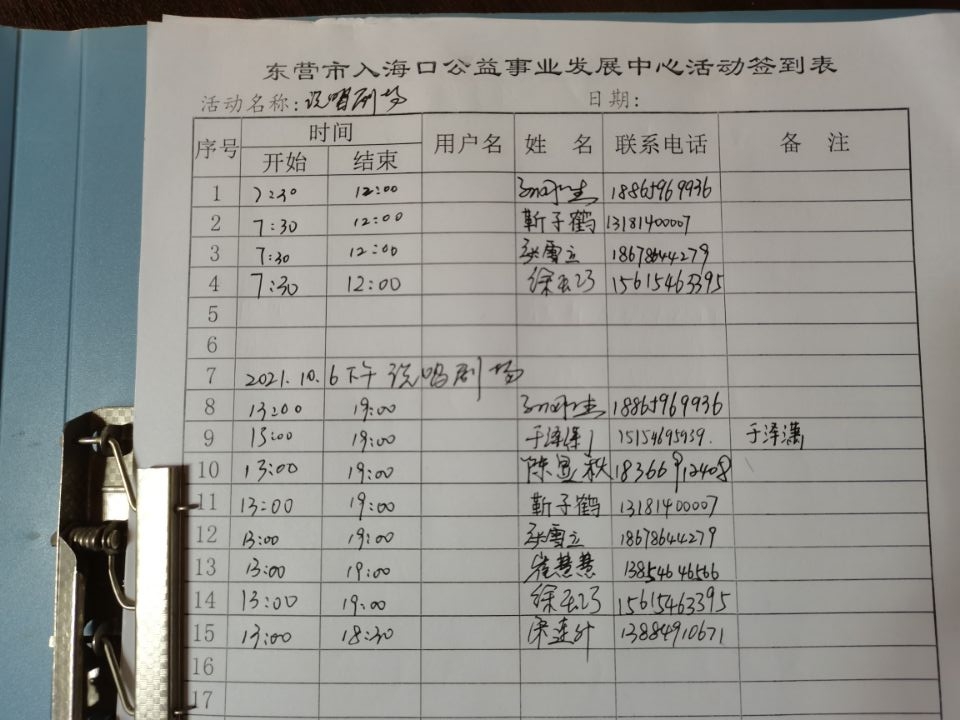 东营市入海口公益事业发展中心活动签到表
活动名称: 说唱剧场 日期:
序号 时间 用户名 姓 名 联系电话 备 注
开始 结束
1 7:30 12:00 18865969936
2 7:30 12:00 靳子鹤 13181400007
3 7:30 12:00 张雪立 18678644279
4 7:30 12:00 徐玉巧 15615463395
5
6
7 2021.10.6下午 说唱剧场
8 13:00 19:00 18865969936
9 13:00 19:00 15154695939. 于泽潇
10 13:00 19:00 陈显秋 18366912408
11 13:00 19:00 靳子鹤 13181400007
12 13:00 19:00 张雪立 18678644279
13 13:00 19:00 崔慧慧 13854646566
14 13:00 19:00 徐玉巧 15615463395
15 13:00 18:30 13884910671
16
17